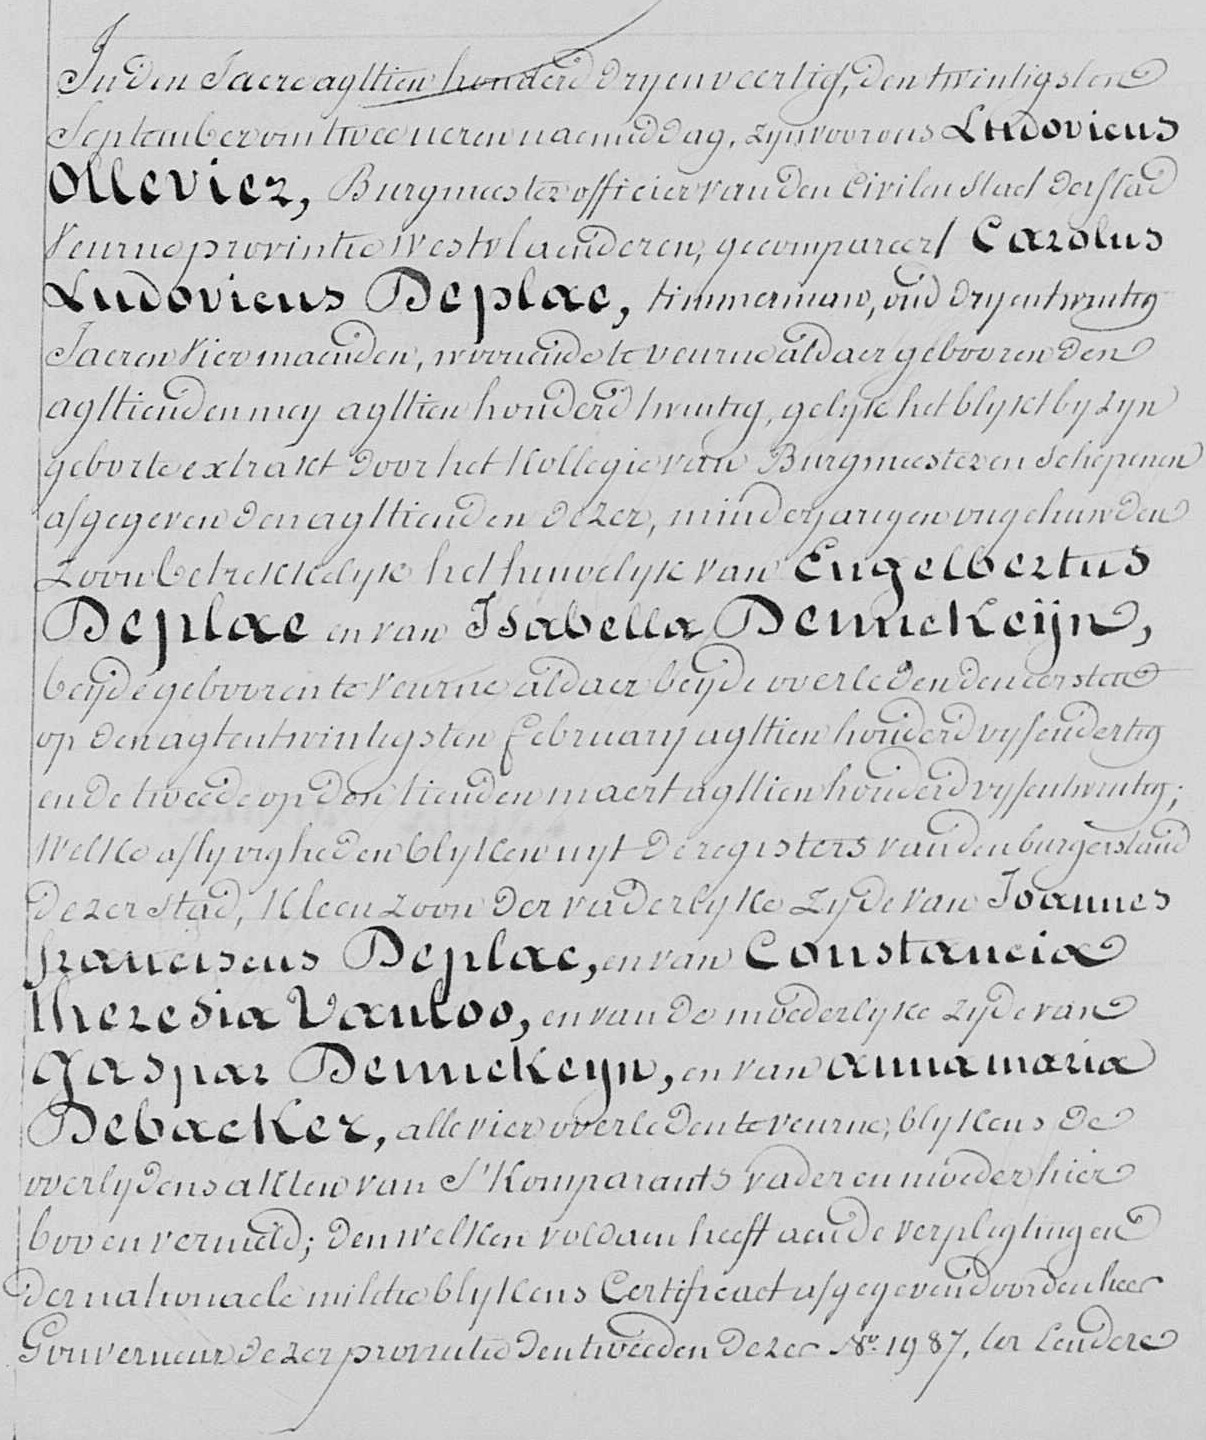 In den Jaere agttien honderd dryenveertig, den twintigsten
September om twee ueren naermiddag, zyn voor ons Ludovicus
Ollevier, Burgmeester officier van den Civilen Staet der stad
Veurne provintie Westvlaenderen, gecompareert Carolus
Ludovicus Deplae, timmerman, oud dryentwintig
Jaeren vier maenden, woonende te veurne aldaer gebooren den
agttienden mey agttien honderd twintig, gelyk het blykt by zyn
geborte extrakt door het Kollegie van Burgmeester en Schepenen
afgegeven den agttienden dezer, minderjarigen ongehuwden
zoon betrekkelyk het huwelyk van Engelbertus
Deplae en van Isabella Dennekeijn,
beijde gebooren te Veurne aldaer beijde overleden den eersten
op den agtentwintigsten february agttien honderd vyfendertig
en de tweede op den tienden maert agttien honderd vyfentwintig;
Welke aflyvigheden blyken uyt de registers van den burgerstand
dezer stad, Kleenzoon der vaderlyke zyde van Joannes
franciscus Deplae, en van Constancia
theresia Vanloo, en van de moederlyke zyde van
Gaspar Dennekeyn, en van anna maria
Debacker, alle vier overleden te veurne, blykens de
overlydens akten van S'Komparants vader en moeder hier
boven vermeld; den welken voldaen heeft aen de verpligtingen
der nationaele militie blykens Certificaet afgegeven door den heer
Gouverneur dezer provintie den tweeden dezer N°. 1987, ter Eendere